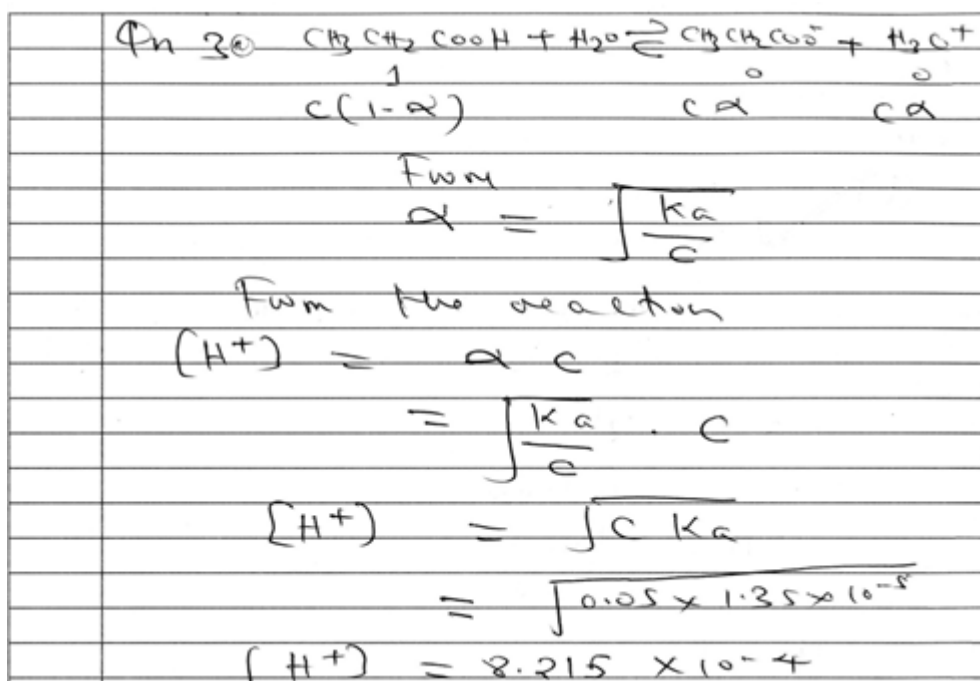 Qn 3(a) CH3 CH2 COOH + H2O ⇌ CH3CH2COO- + H3O+
1 0 0
C(1-α) Cα Cα
From
α = √(Ka/C)
From the reaction
[H+) = α C
= √(Ka/C) . C
[H+) = √(C Ka)
= √(0.05 × 1.35 × 10-5)
[H+) = 8.215 × 10-4